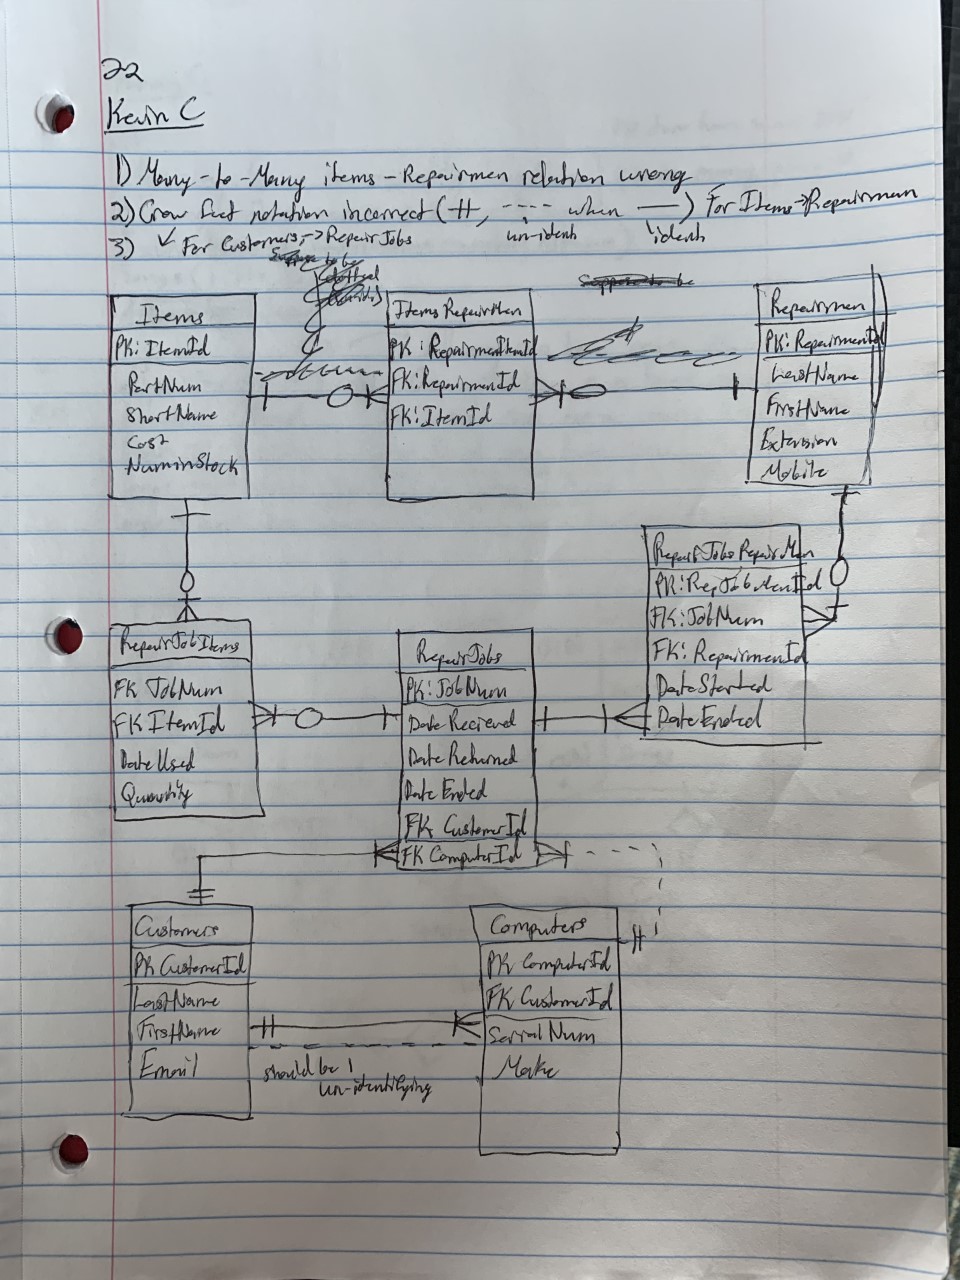 22
Kevin C
1) Many-to-Many items-Repairmen relation wrong
2) Crow foot notation incorrect (++, ---- when ——) For Items->Repairmen
un-ident ident
3) ✓ For Customers,->RepairJobs
Suppose to be
Supposed to be
Items
PK: ItemId
PartNum
ShortName
Cost
NuminStock
ItemsRepairMen
PK: RepairmenItemId
FK: RepairmenId
FK: ItemId
Repairmen
PK: RepairmenId
LastName
FirstName
Extension
Mobile
RepairJobsRepairMen
PK: RepJobMenId
FK: JobNum
FK: RepairmenId
DateStarted
DateEnded
RepairJobItems
FK JobNum
FK ItemId
DateUsed
Quantity
RepairJobs
PK: JobNum
Date Recieved
Date Returned
Date Ended
FK CustomerId
FK ComputerId
Customers
PK CustomerId
LastName
FirstName
Email
should be
un-identifying
Computers
PK ComputerId
FK CustomerId
Serial Num
Make